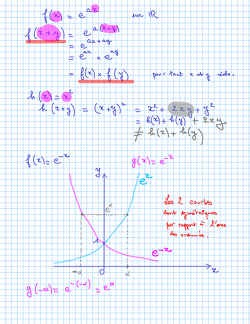 f(x) = e^{ax} sur ℝ
f(x+y) = e^{a(x+y)}
= e^{ax+ay}
= e^{ax} × e^{ay}
= f(x) × f(y) pour tout x et y réels.
h(x) = x²
h(x+y) = (x+y)² = x² + 2xy + y²
= h(x) + h(y) + 2xy
≠ h(x) + h(y)
f(x) = e^{-x} g(x) = e^{-x}
y
e^x
Les 2 courbes
sont symétriques
par rapport à l'axe
des ordonnées.
e^α
1
e^{-x}
-α 0 α x
g(-α) = e^{-(-α)} = e^α